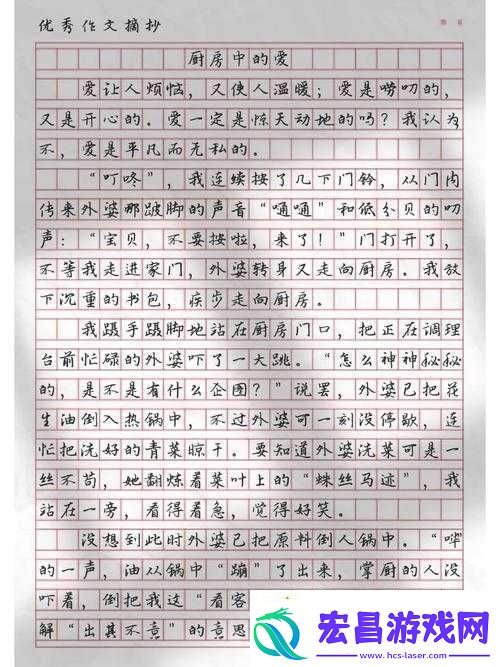 优秀作文摘抄
厨房中的爱
爱让人烦恼，又使人温暖；爱是唠叨的，
又是开心的。爱一定是惊天动地的吗？我认为
不，爱是平凡而无私的。
“叮咚”，我连续按了几下门铃，从门内
传来外婆那跛脚的声音“嗵嗵”和低分贝的叨
声：“宝贝，不要按啦，来了！”门打开了，
不等我走进家门，外婆转身又走向厨房。我放
下沉重的书包，疾步走向厨房。
我蹑手蹑脚地站在厨房门口，把正在调理
台前忙碌的外婆吓了一大跳。“怎么神神秘秘
的，是不是有什么企图？”说罢，外婆已把花
生油倒入热锅中，不过外婆可一刻没停歇，连
忙把洗好的青菜晾干。要知道外婆洗菜可是一
丝不苟，她翻炼着菜叶上的“蛛丝马迹”，我
站在一旁，看得着急，觉得好笑。
没想到此时外婆已把原料倒人锅中。“哗”
的一声，油从锅中“蹦”了出来，掌厨的人没
吓着，倒把我这“看客
解“出其不意”的意思
宏昌游戏网
www.hcs-laser.com